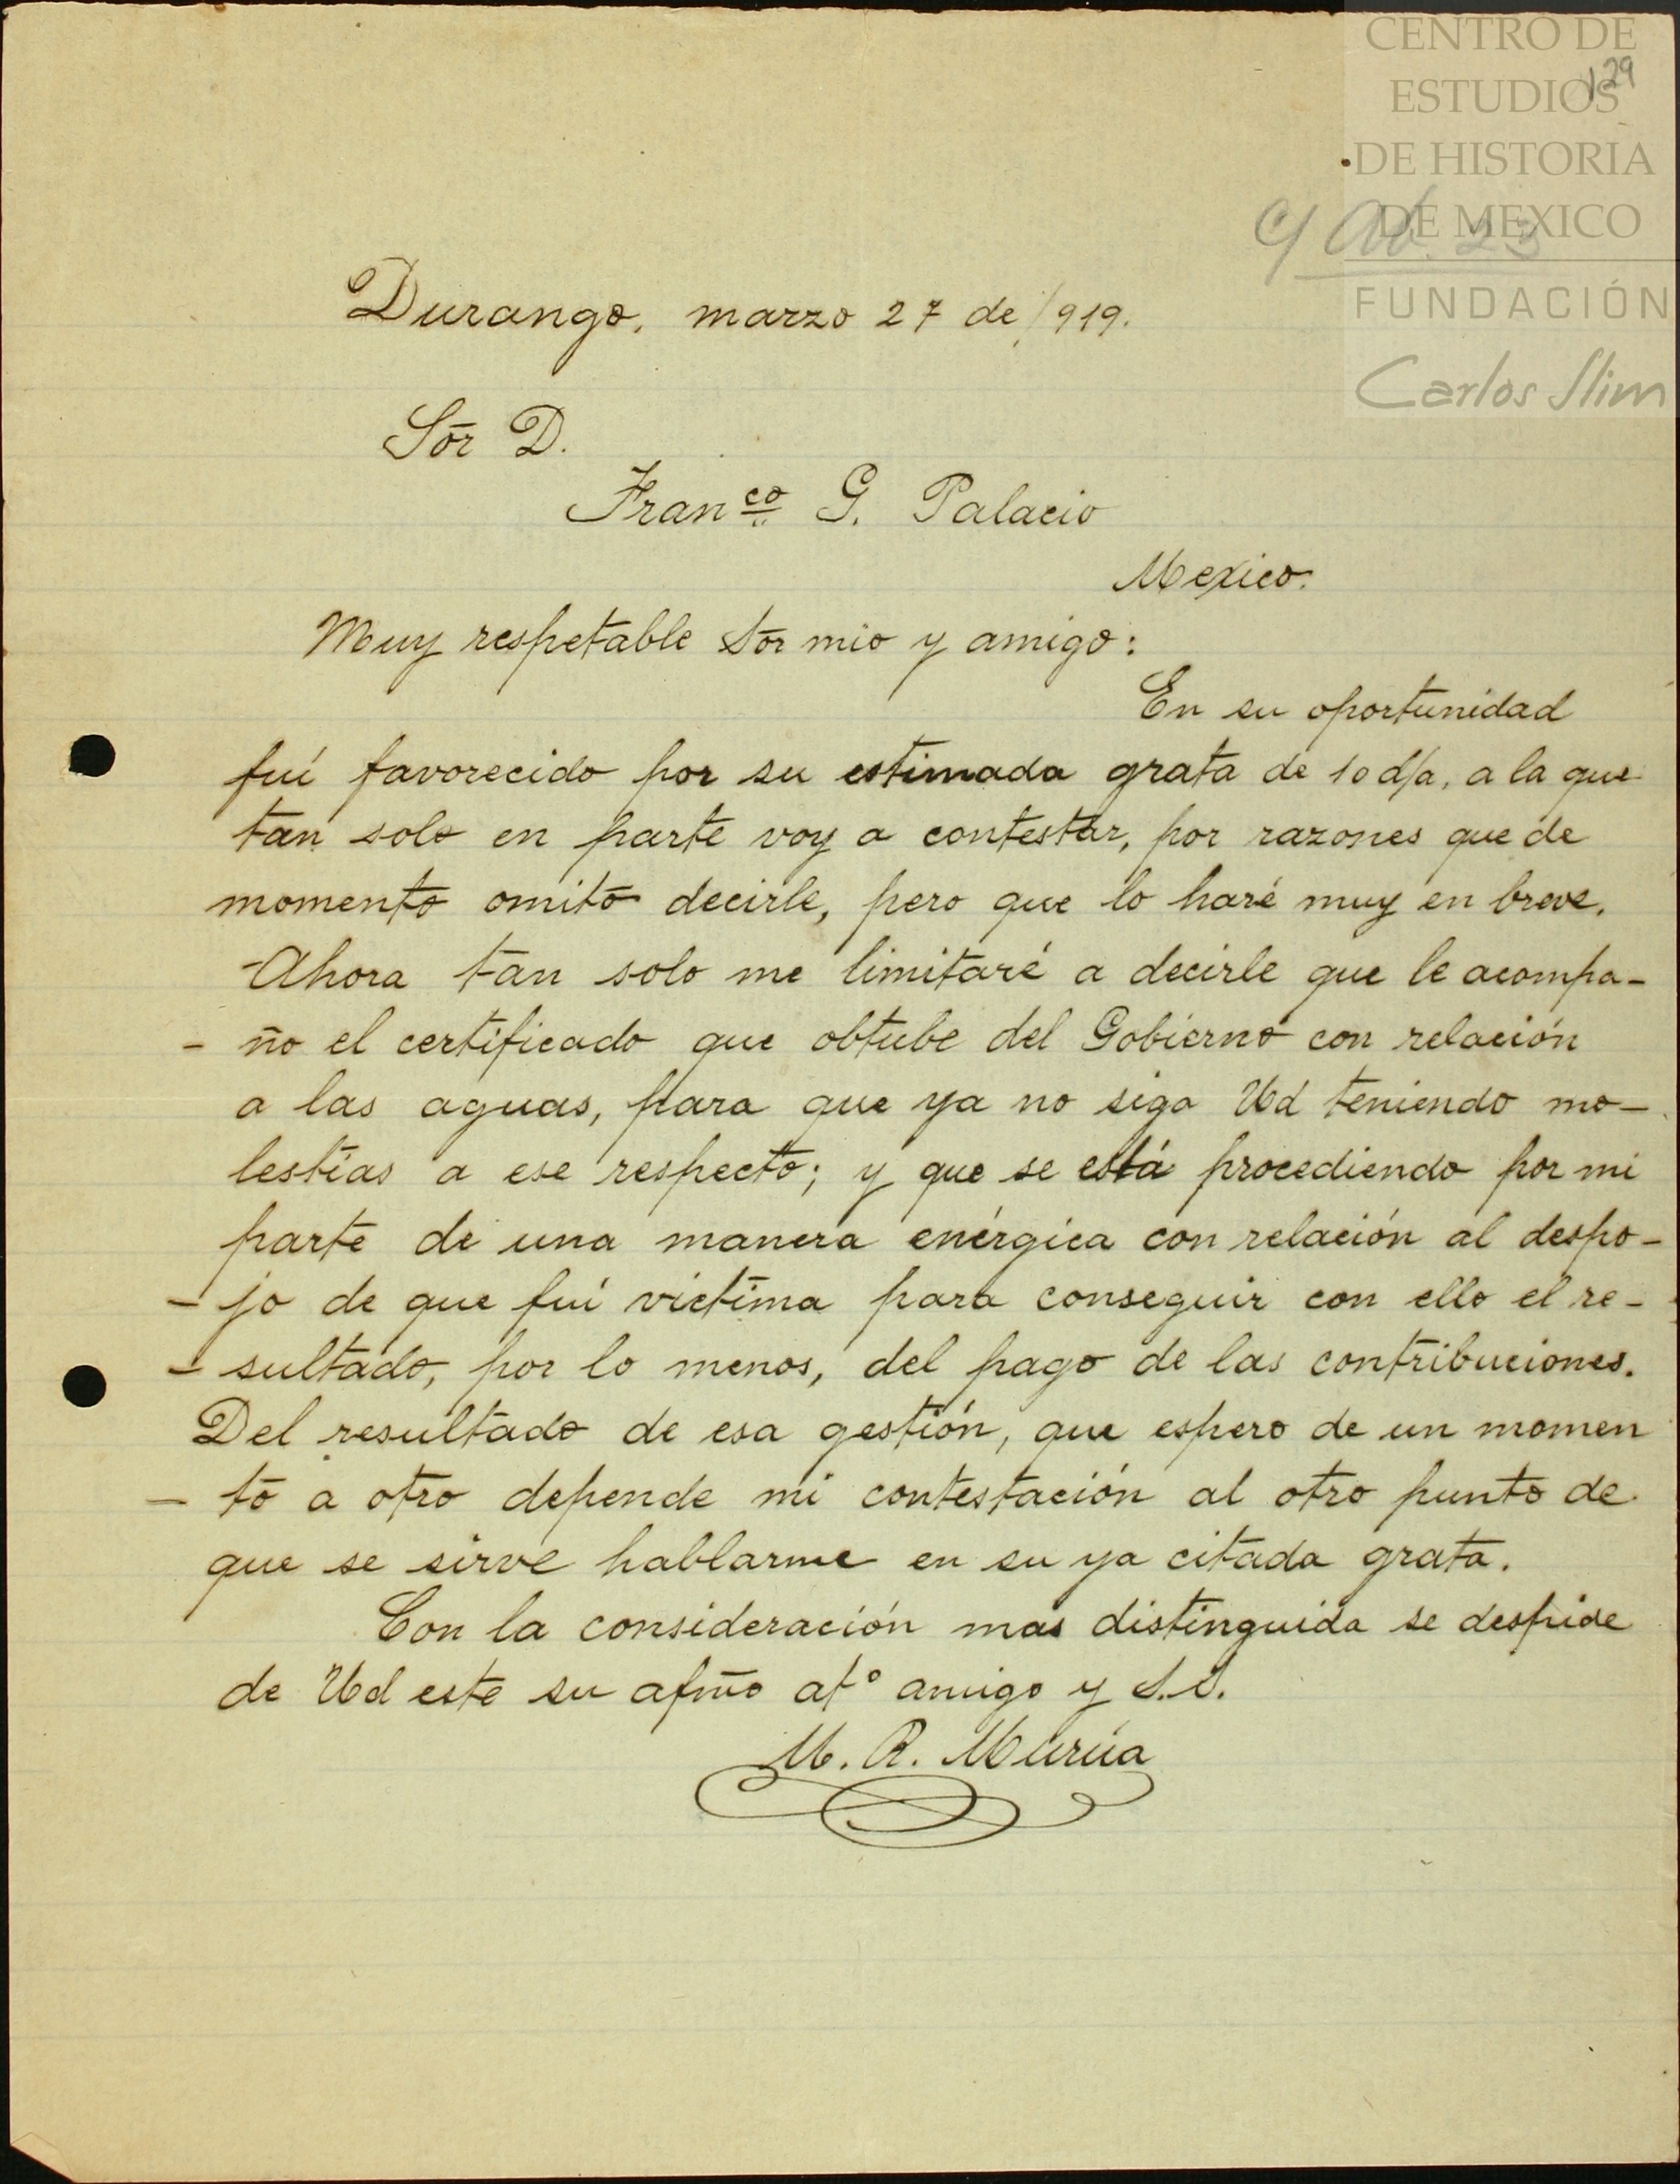 CENTRO DE
129
ESTUDIOS
DE HISTORIA
DE MEXICO
c/ Ab. 23
FUNDACIÓN
Carlos Slim
Durango, marzo 27 de 1919.
Sor D.
Franco G. Palacio
Mexico.
Muy respetable Sor mio y amigo:
En su oportunidad
fuí favorecido por su estimada grata de 10 d/a, a la que
tan solo en parte voy a contestar, por razones que de
momento omito decirle, pero que lo haré muy en breve.
Ahora tan solo me limitaré a decirle que le acompa-
- ño el certificado que obtube del Gobierno con relación
a las aguas, para que ya no siga Ud teniendo mo-
lestias a ese respecto; y que se está procediendo por mi
parte de una manera enérgica con relación al despo-
- jo de que fuí victima para conseguir con ello el re-
- sultado, por lo menos, del pago de las contribuciones.
Del resultado de esa gestión, que espero de un momen
- to a otro depende mi contestación al otro punto de
que se sirve hablarme en su ya citada grata.
Con la consideración mas distinguida se despide
de Ud este su afmo ato amigo y S.S.
M. R. Murúa